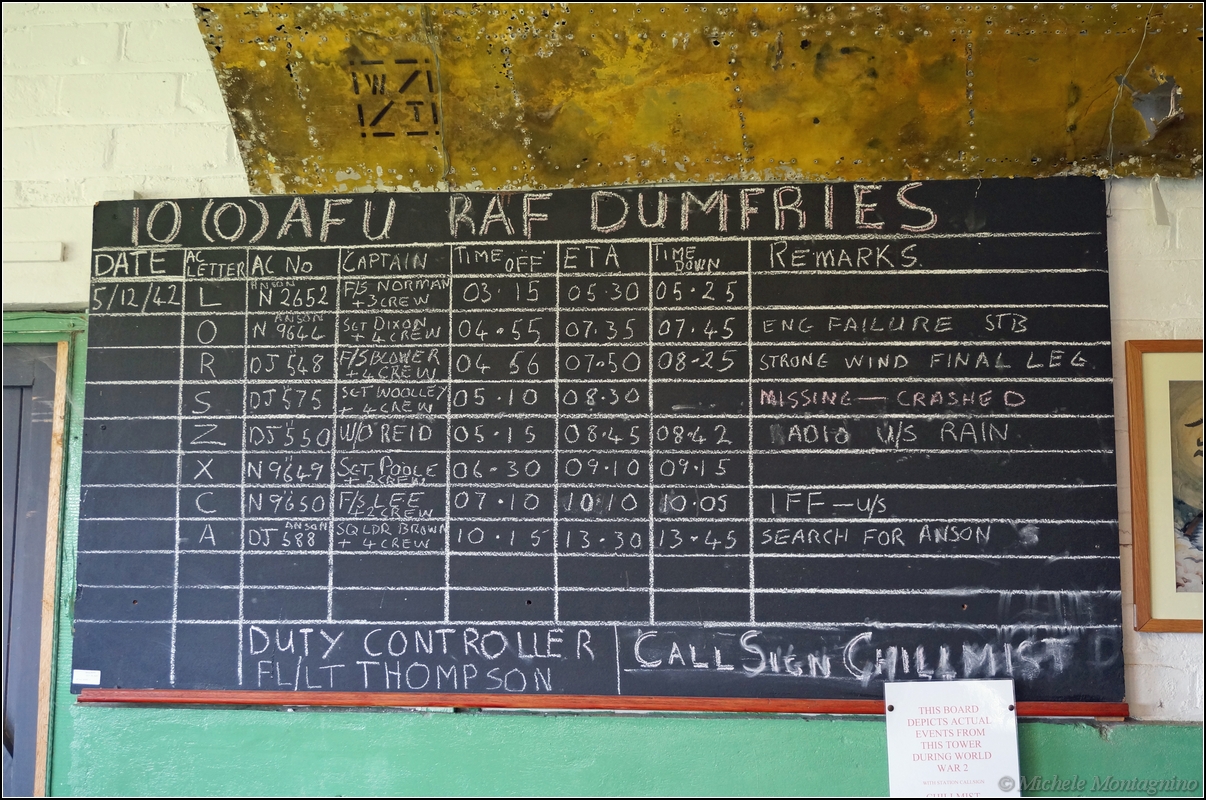 10 (O) AFU RAF DUMFRIES
DATE AC LETTER AC NO CAPTAIN TIME OFF ETA TIME DOWN REMARKS.
5/12/42 L ANSON N 2652 F/S NORMAN +3 CREW 03·15 05·30 05·25
O ANSON N 9644 SGT DIXON + 4 CREW 04·55 07·35 07·45 ENG FAILURE STB
R DJ " 548 F/S BLOWER + 4 CREW 04 56 07·50 08·25 STRONG WIND FINAL LEG
S DJ " 575 SGT WOOLLEY + 4 CREW 05·10 08·30 MISSING — CRASHED
Z DJ " 550 W/O REID 05·15 08·45 08·42 RADIO U/S RAIN
X N " 9649 SGT POOLE + 2 CREW 06·30 09·10 09·15
C N " 9650 F/S LEE +2 CREW 07·10 10 10 10 05 IFF — U/S
A ANSON DJ 588 SQ LDR BROWN + 4 CREW 10·15 13·30 13·45 SEARCH FOR ANSON
DUTY CONTROLLER
FL/LT THOMPSON
CALL SIGN CHILLMIST
THIS BOARD
DEPICTS ACTUAL
EVENTS FROM
THIS TOWER
DURING WORLD
WAR 2
CHILLMIST
© Michele Montagnino